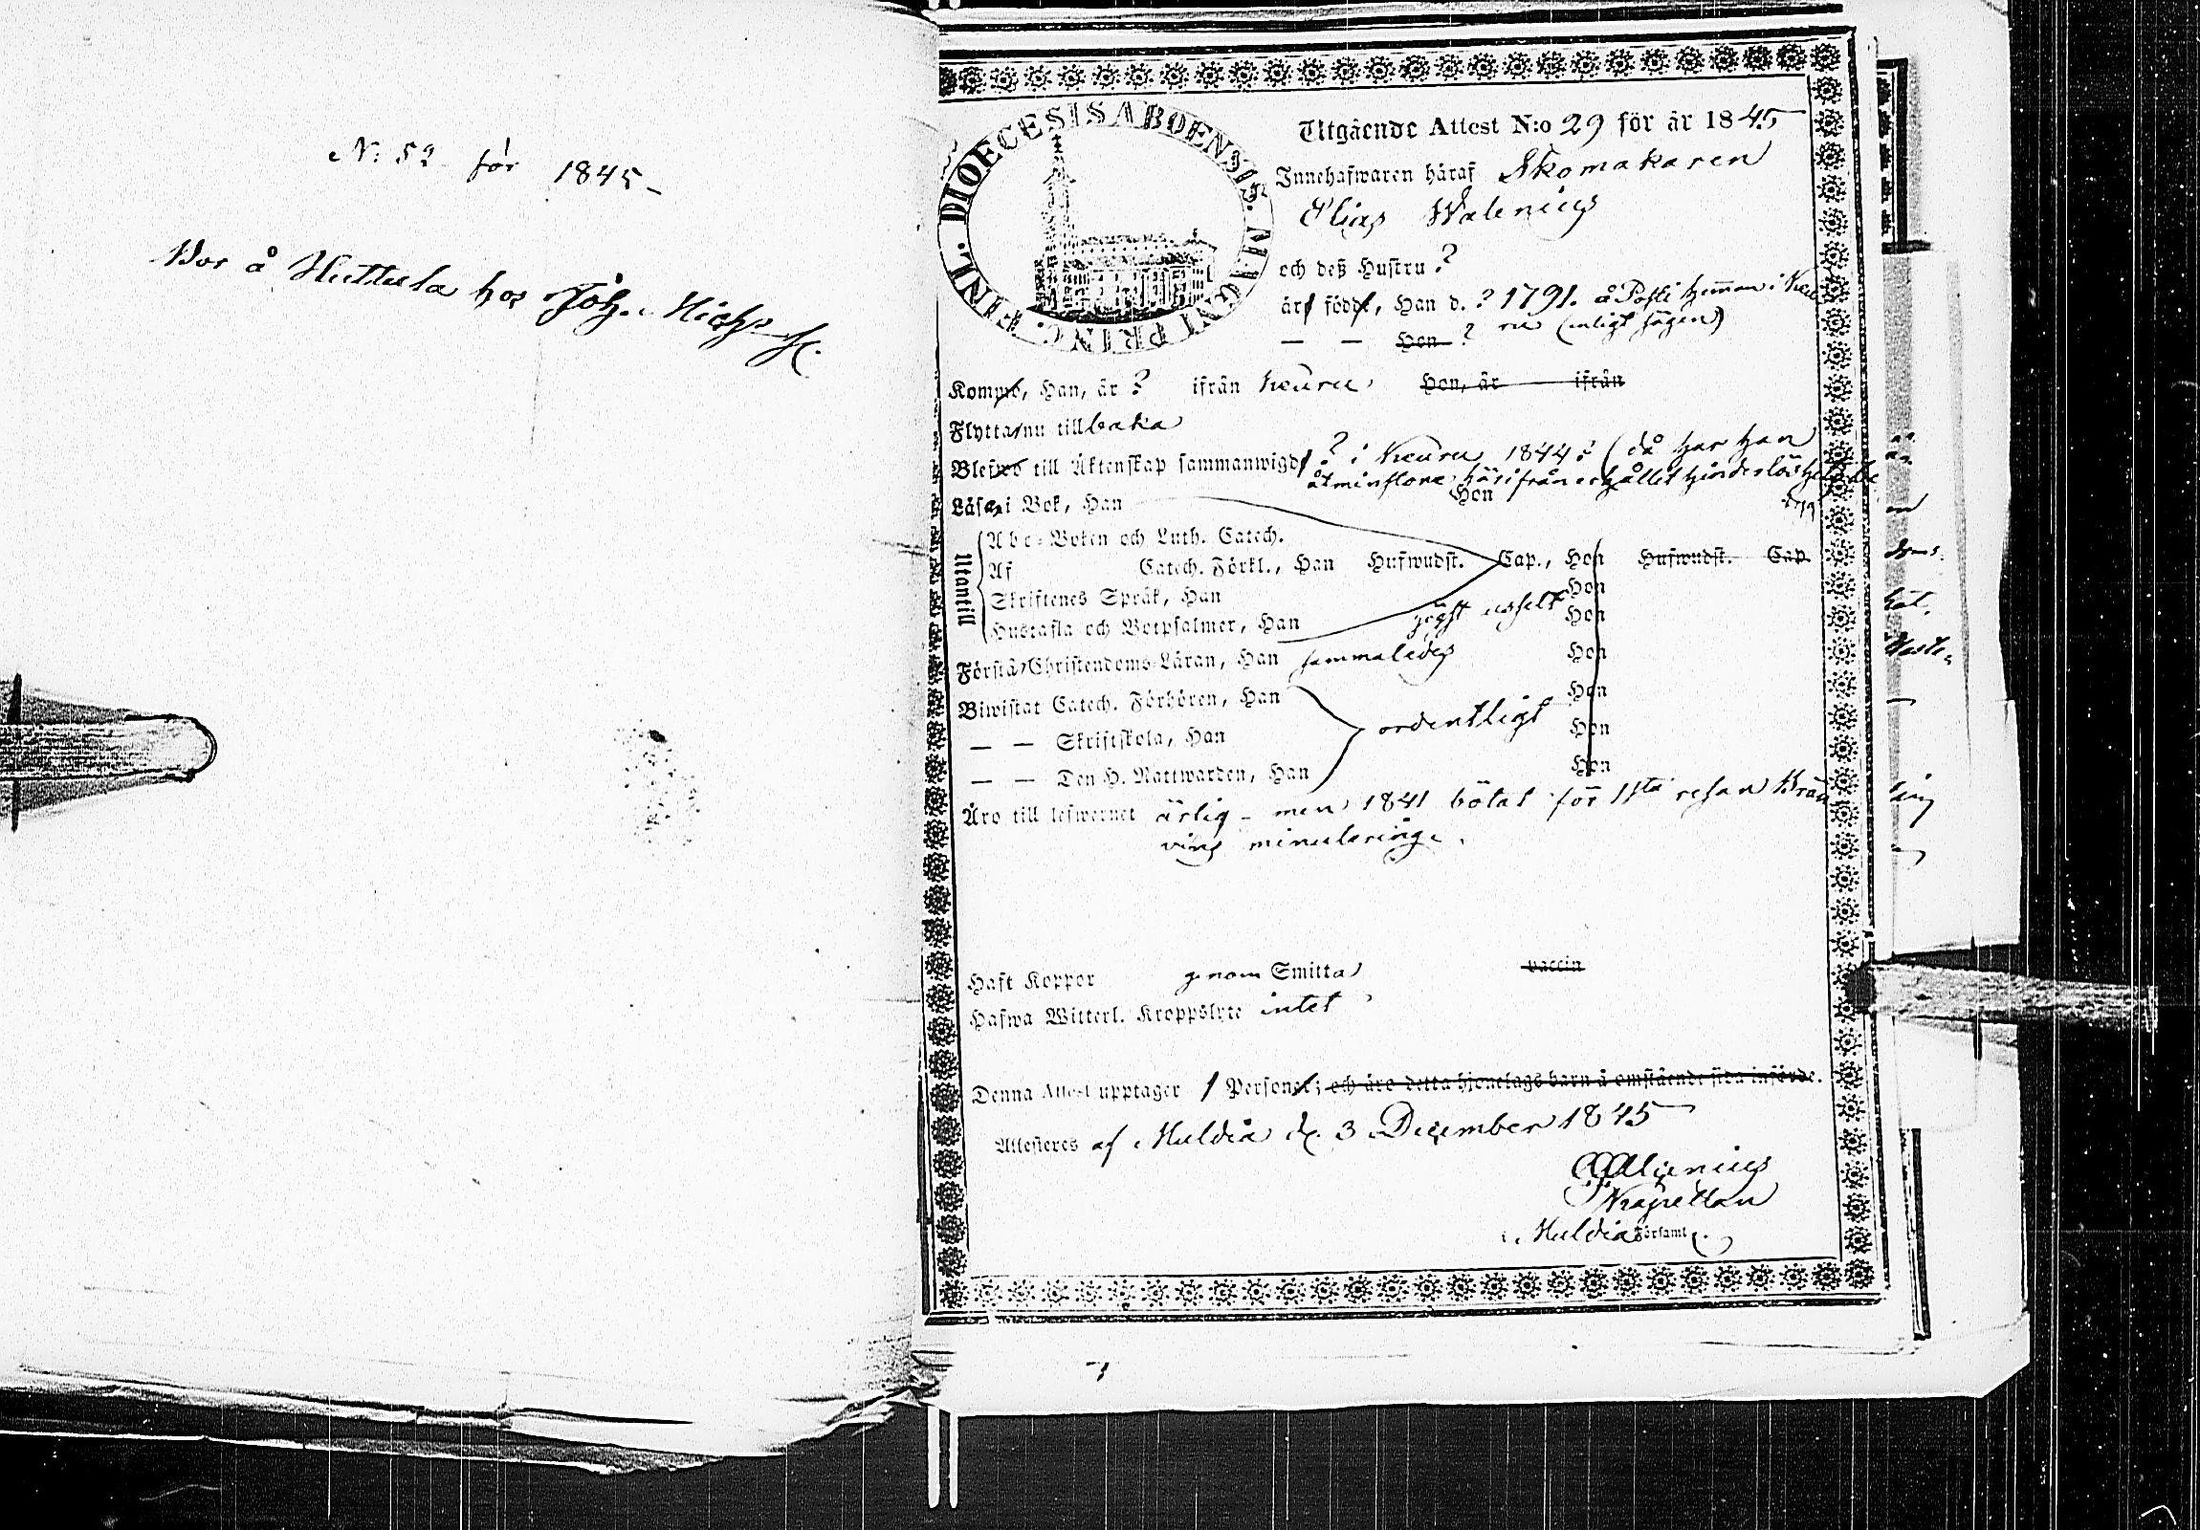 N: 52 för 1845 –
Bor å Huttula hos Joh. Michs
DIOECESIS ABOENSIS. M. DVC. PRINC. FINL.
Utgående Attest N:o 29 för år 1845
Innehafwaren häraf Skomakaren
Elias Walenius
och deß Hustru ?
är född, Han d. ? 1791. å Posti hemman i Keu
ru (enligt sägen)
— — Hon ?
Kommo, Han, år ? ifrån Keuru Hon, år ifrån
Flytta nu tillbaka
Blefwo till Äktenskap sammanwigd ? i Keuru 1844 ? (då har han
åtminstone härifrån erhållit hinderlöshets be
Läsa i Bok, Han Hon
Utantill
Abc-Boken och Luth. Catech.
Af Catech. Förkl., Han Hufwudst. Cap., Hon Hufwudst. Cap.
Skriftenes Språk, Han Hon
Hustafla och Botpsalmer, Han högst uselt Hon
Förstå Christendoms Läran, Han sammaledes Hon
Biwistat Catech. Förhören, Han Hon
— — Skriftskola, Han ordentligt Hon
— — Den H. Nattwarden, Han Hon
Äro till lefwernet ärlig – men 1841 bötat för 1sta resan Brän
vins minutering.
Haft Koppor genom Smitta vaccin
Hafwa Witterl. Kroppslyte intet
Denna Attest upptager 1 Personer; och äro detta hjonelags barn å omstående sida införde.
Attesteres af Muldia d. 3 December 1845
Alcenius
Kapellan
i Muldia Församl.